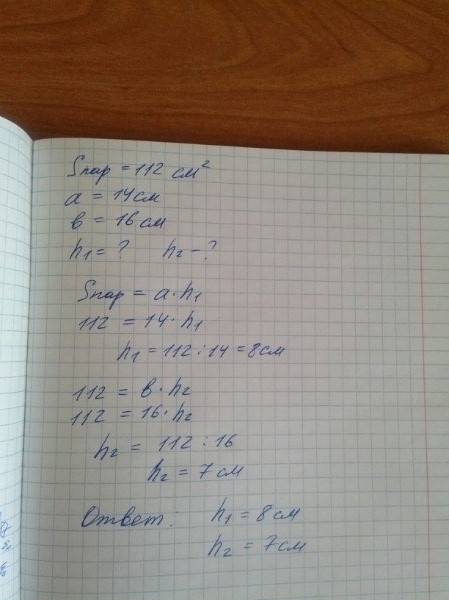 Sпар = 112 см²
a = 14 см
в = 16 см
h1 = ? h2 - ?
Sпар = a · h1
112 = 14 · h1
h1 = 112 : 14 = 8 см
112 = в · h2
112 = 16 · h2
h2 = 112 : 16
h2 = 7 см
Ответ: h1 = 8 см
h2 = 7 см